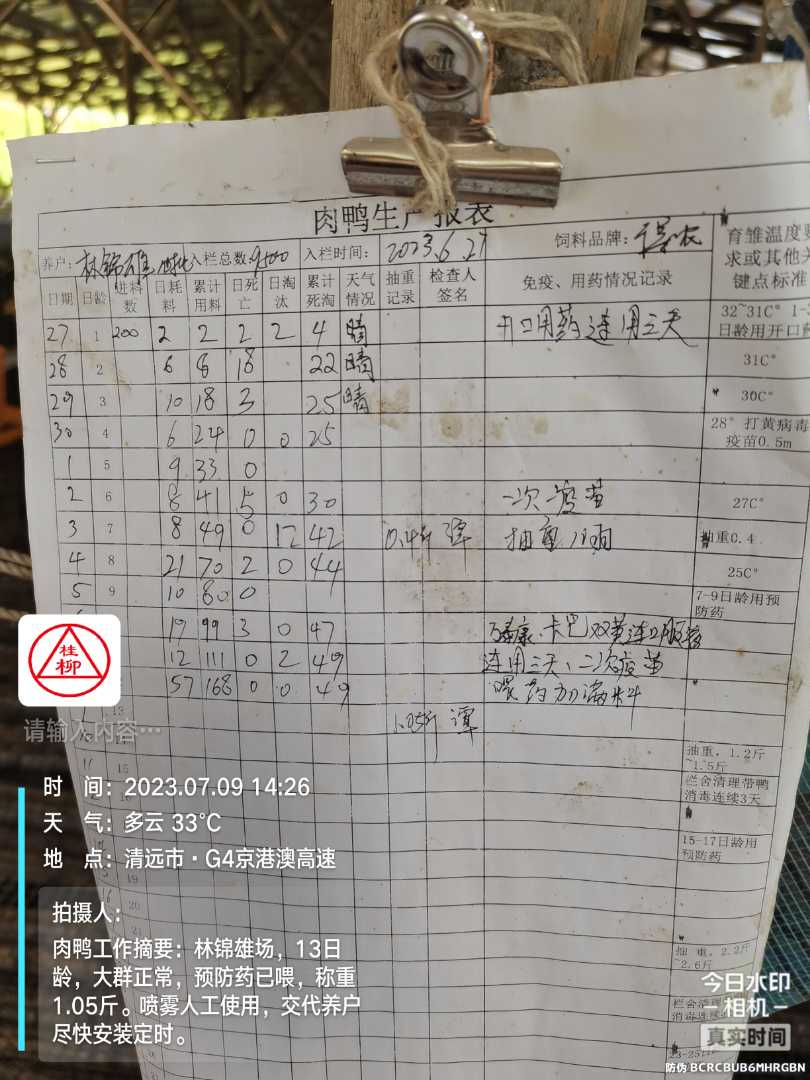 肉鸭生产报表
养户: 林锦雄 入栏总数:9500 入栏时间: 2023.6.27 饲料品牌: 育雏温度要求或其他关键点标准
日期 日龄 进料数 日耗料 累计用料 日死亡 日淘汰 累计死淘 天气情况 抽重记录 检查人签名 免疫、用药情况记录
27 1 200 2 2 2 2 4 晴 开口用药连用三天 32~31C° 1-3日龄用开口
28 2 6 8 18 22 晴 31C°
29 3 10 18 3 25 晴 30C°
30 4 6 24 0 0 25 28° 打黄病毒疫苗0.5m
1 5 9 33 0
2 6 8 41 5 0 30 一次疫苗 27C°
3 7 8 49 0 12 42 0.4斤 谭 抽重 抽重0.4
4 8 21 70 2 0 44 25C°
5 9 10 80 0 7-9日龄用预防药
19 99 3 0 47
12 111 0 2 49 连用三天、二次疫苗
57 168 0 0 49
13 1.05斤 谭
14 抽重, 1.2斤~1.5斤
15 栏舍清理带鸭消毒连续3天
16
15-17日龄用预防药
19
20
21
抽重, 2.2斤~2.6斤
桂柳
请输入内容…
时 间: 2023.07.09 14:26
天 气: 多云 33℃
地 点: 清远市·G4京港澳高速
拍摄人:
肉鸭工作摘要: 林锦雄场, 13日
龄, 大群正常, 预防药已喂, 称重
1.05斤。喷雾人工使用, 交代养户
尽快安装定时。
今日水印
相机
真实时间
防伪 BCRCBUB6MHRGBN